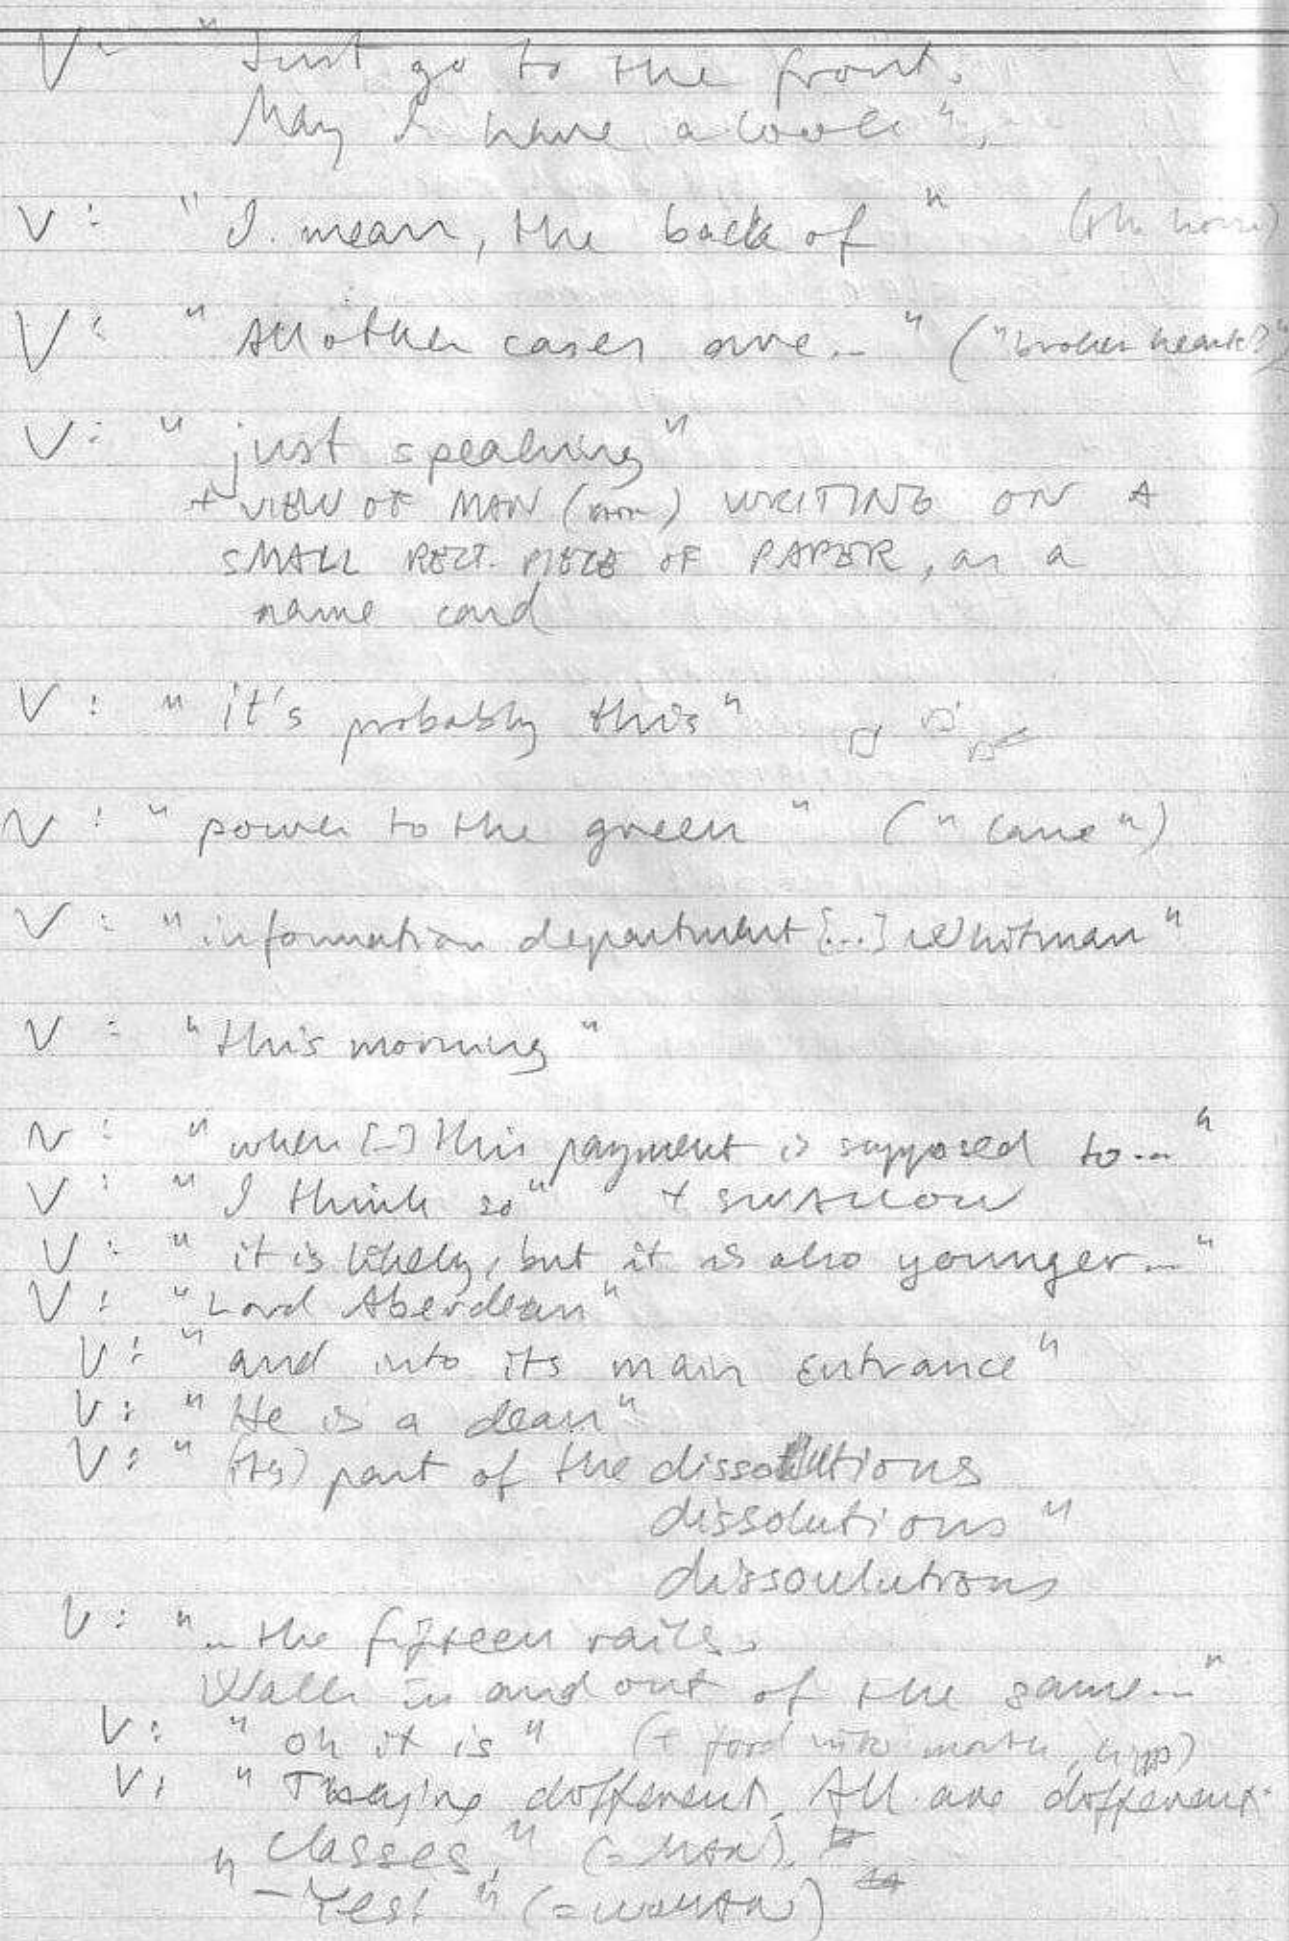 V: "Just go to the front.
May I have a look".
V: "I mean, the back of" (the
V: "All other cases are..." ("broken heart?")
V: "just speaking"
+ VIEW OF MAN WRITING ON A
SMALL RECT. PIECE OF PAPER, as a
name card
V: "it's probably this"
V: "power to the green" ("cane")
V: "information department [...] Whitman"
V: "this morning"
V: "when [...] this payment is supposed to..."
V: "I think so" + SWALLOW
V: "it is likely, but it is also younger..."
V: "Lord Aberdean"
V: "and into its main entrance"
V: "He is a dean"
V: "(its) part of the dissolutions
dissolutions"
dissoulutions
V: "... the fifteen rails.
Walk in and out of the same..."
V: "oh it is" (+ food into mouth,
V: "They're different. All are different
classes," (= MAN).
"- Yes!" (= WOMAN)